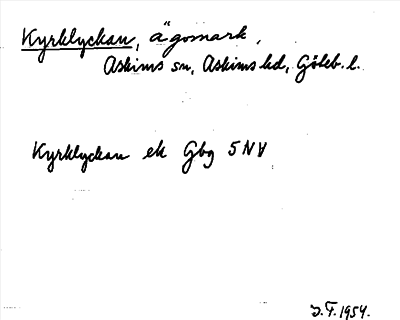 Kyrklyckan, ägomark,
Askims sn, Askims hd, Göteb. l.
Kyrklyckan ek Gbg 5NV
J.F. 1954.